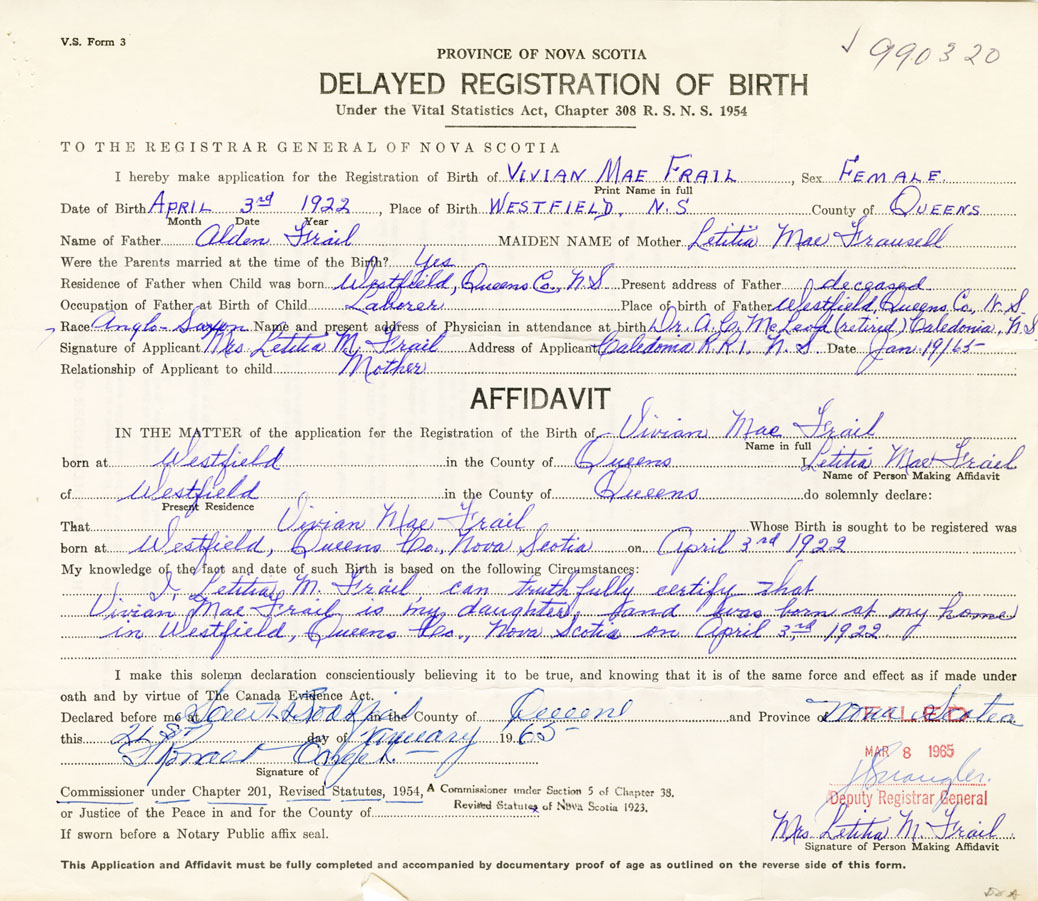 V.S. Form 3
990320
PROVINCE OF NOVA SCOTIA
DELAYED REGISTRATION OF BIRTH
Under the Vital Statistics Act, Chapter 308 R. S. N. S. 1954
TO THE REGISTRAR GENERAL OF NOVA SCOTIA
I hereby make application for the Registration of Birth of VIVIAN MAE FRAIL, Sex FEMALE.
Print Name in full
Date of Birth APRIL 3rd 1922, Place of Birth WESTFIELD, N.S County of QUEENS
Month Date Year
Name of Father Alden Frail MAIDEN NAME of Mother Letitia Mae Frausell
Were the Parents married at the time of the Birth? Yes
Residence of Father when Child was born Westfield, Queens Co., N.S Present address of Father deceased
Occupation of Father at Birth of Child Laborer Place of birth of Father Westfield, Queens Co., N.S.
Race Anglo-Saxon Name and present address of Physician in attendance at birth Dr. A. (retired) Caledonia, N.S
Signature of Applicant Mrs Letitia M. Frail Address of Applicant Caledonia R.R.1, N.S. Date Jan. 19/65
Relationship of Applicant to child Mother
AFFIDAVIT
IN THE MATTER of the application for the Registration of the Birth of Vivian Mae Frail
Name in full
born at Westfield in the County of Queens I, Letitia Mae Frail
Name of Person Making Affidavit
of Westfield in the County of Queens do solemnly declare:
Present Residence
That Vivian Mae Frail Whose Birth is sought to be registered was
born at Westfield, Queens Co., Nova Scotia on April 3rd 1922
My knowledge of the fact and date of such Birth is based on the following Circumstances:
I, Letitia M. Frail, can truthfully certify that
Vivian Mae Frail is my daughter, and was born at my home
in Westfield, Queens Co., Nova Scotia on April 3rd, 1922.
I make this solemn declaration conscientiously believing it to be true, and knowing that it is of the same force and effect as if made under
oath and by virtue of The Canada Evidence Act.
Declared before me at South Brookfield in the County of Queens and Province of Nova Scotia
FILED
this 21st day of January 1965
MAR 8 1965
Signature of
Deputy Registrar General
Commissioner under Chapter 201, Revised Statutes, 1954, A Commissioner under Section 5 of Chapter 38.
Revised Statutes of Nova Scotia 1923.
or Justice of the Peace in and for the County of
Mrs Letitia M. Frail
If sworn before a Notary Public affix seal.
Signature of Person Making Affidavit
This Application and Affidavit must be fully completed and accompanied by documentary proof of age as outlined on the reverse side of this form.